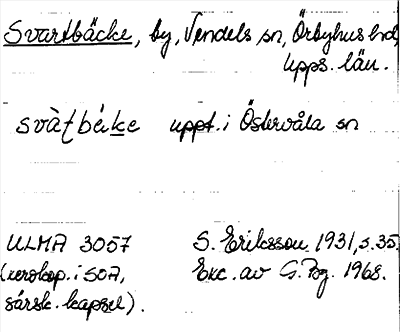 Svartbäcke, by, Vendels sn, Örbyhus hd,
Upps. län.
svàtbéke uppt. i Östervåla sn
ULMA 3057
(xerokop. i SOA,
särsk. kapsel).
S. Eriksson 1931, s. 35.
Exc. av G. Pg. 1968.